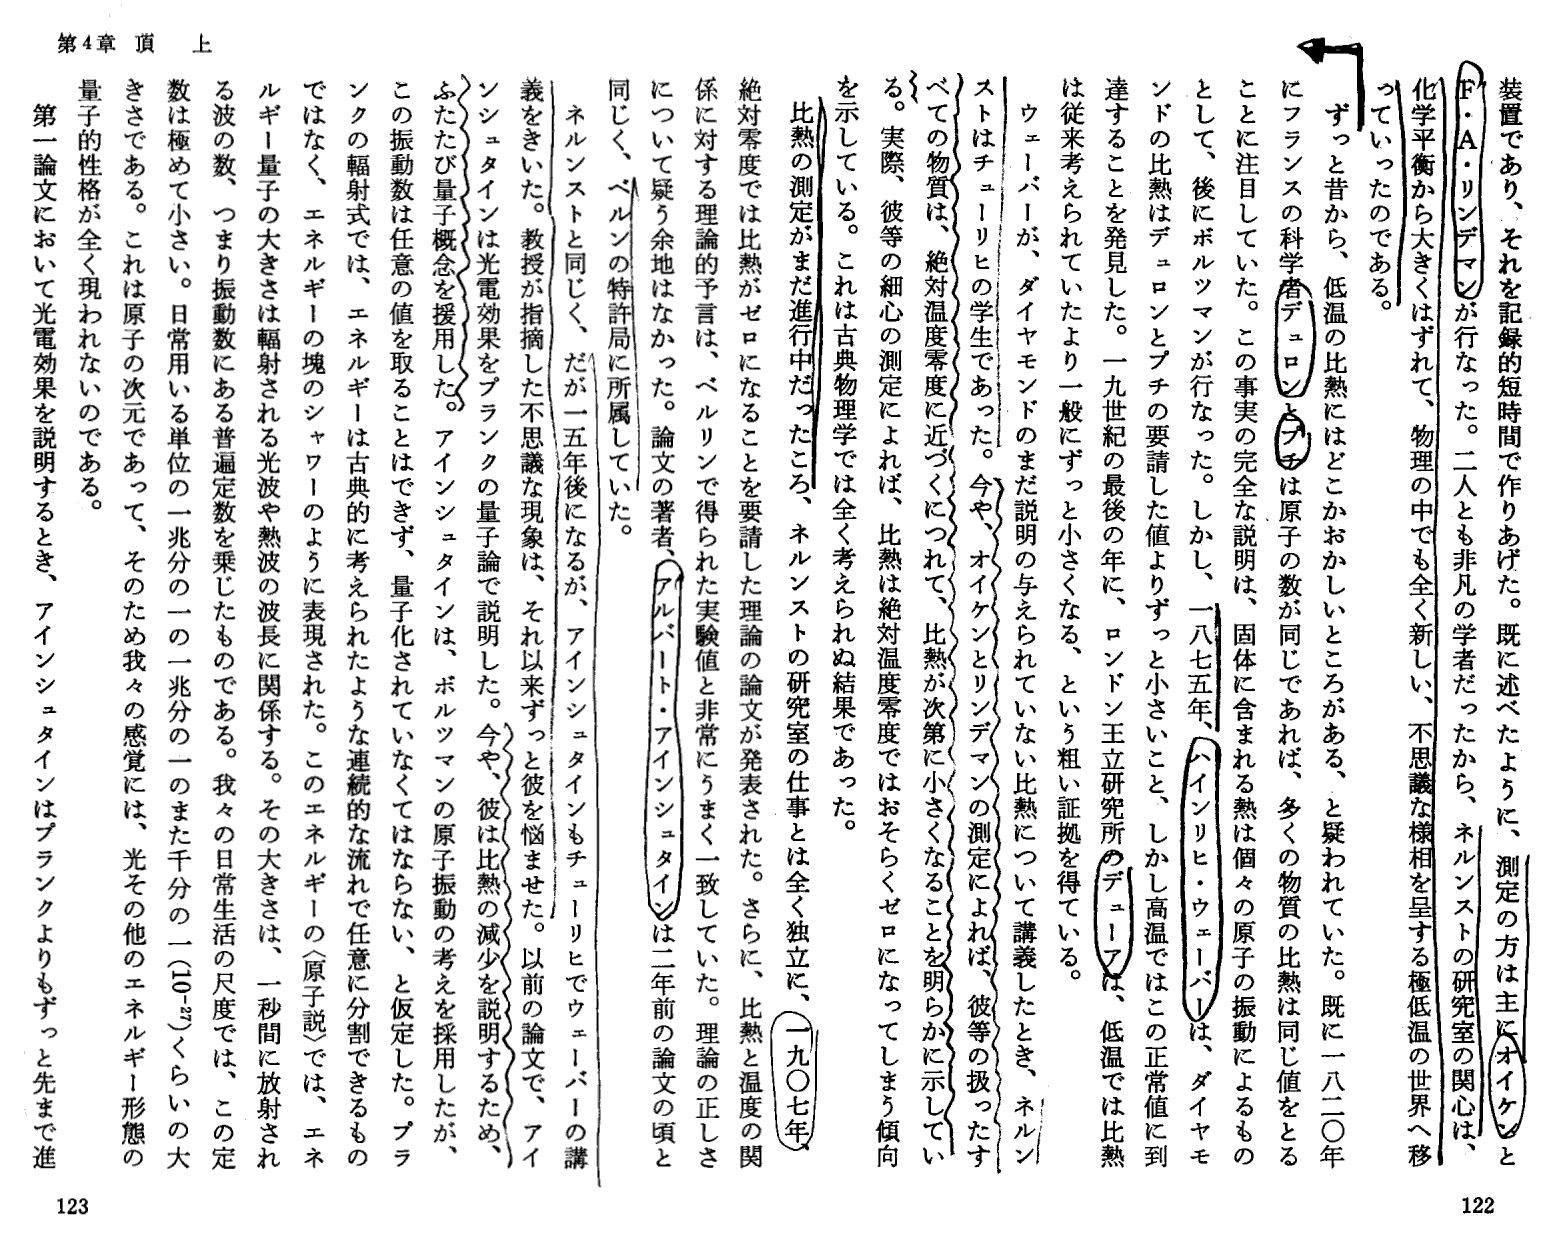 装置であり、それを記録的短時間で作りあげた。既に述べたように、測定の方は主にオイケンと
F・A・リンデマンが行なった。二人とも非凡の学者だったから、ネルンストの研究室の関心は、
化学平衡から大きくはずれて、物理の中でも全く新しい、不思議な様相を呈する極低温の世界へ移
っていったのである。
ずっと昔から、低温の比熱にはどこかおかしいところがある、と疑われていた。既に一八二〇年
にフランスの科学者デュロンとプチは原子の数が同じであれば、多くの物質の比熱は同じ値をとる
ことに注目していた。この事実の完全な説明は、固体に含まれる熱は個々の原子の振動によるもの
として、後にボルツマンが行なった。しかし、一八七五年、ハインリヒ・ウェーバーは、ダイヤモ
ンドの比熱はデュロンとプチの要請した値よりずっと小さいこと、しかし高温ではこの正常値に到
達することを発見した。一九世紀の最後の年に、ロンドン王立研究所のデューアは、低温では比熱
は従来考えられていたより一般にずっと小さくなる、という粗い証拠を得ている。
ウェーバーが、ダイヤモンドのまだ説明の与えられていない比熱について講義したとき、ネルン
ストはチューリヒの学生であった。今や、オイケンとリンデマンの測定によれば、彼等の扱ったす
べての物質は、絶対温度零度に近づくにつれて、比熱が次第に小さくなることを明らかに示してい
る。実際、彼等の細心の測定によれば、比熱は絶対温度零度ではおそらくゼロになってしまう傾向
を示している。これは古典物理学では全く考えられぬ結果であった。
比熱の測定がまだ進行中だったころ、ネルンストの研究室の仕事とは全く独立に、一九〇七年、
絶対零度では比熱がゼロになることを要請した理論の論文が発表された。さらに、比熱と温度の関
係に対する理論的予言は、ベルリンで得られた実験値と非常にうまく一致していた。理論の正しさ
について疑う余地はなかった。論文の著者、アルバート・アインシュタインは二年前の論文の頃と
同じく、ベルンの特許局に所属していた。
ネルンストと同じく、だが一五年後になるが、アインシュタインもチューリヒでウェーバーの講
義をきいた。教授が指摘した不思議な現象は、それ以来ずっと彼を悩ませた。以前の論文で、アイ
ンシュタインは光電効果をプランクの量子論で説明した。今や、彼は比熱の減少を説明するため、
ふたたび量子概念を援用した。アインシュタインは、ボルツマンの原子振動の考えを採用したが、
この振動数は任意の値を取ることはできず、量子化されていなくてはならない、と仮定した。プラ
ンクの輻射式では、エネルギーは古典的に考えられたような連続的な流れで任意に分割できるもの
ではなく、エネルギーの塊のシャワーのように表現された。このエネルギーの〈原子説〉では、エネ
ルギー量子の大きさは輻射される光波や熱波の波長に関係する。その大きさは、一秒間に放射され
る波の数、つまり振動数にある普遍定数を乗じたものである。我々の日常生活の尺度では、この定
数は極めて小さい。日常用いる単位の一兆分の一の一兆分の一のまた千分の一(10⁻²⁷)くらいの大
きさである。これは原子の次元であって、そのため我々の感覚には、光その他のエネルギー形態の
量子的性格が全く現われないのである。
第一論文において光電効果を説明するとき、アインシュタインはプランクよりもずっと先まで進
第4章 頂 上
122
123